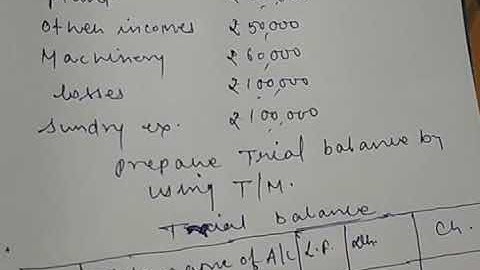 Other incomes ₹ 50,000
Machinery ₹ 60,000
losses ₹ 100,000
Sundry ex. ₹ 100,000
Prepare Trial balance by
using T/M.
Trial balance
name of A/C L.F. Ch.